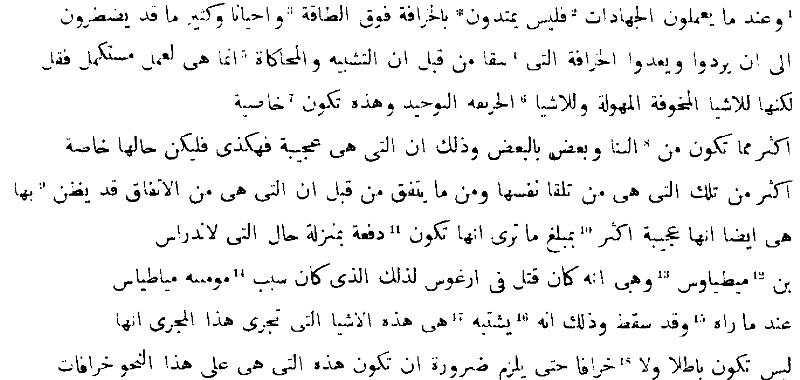 ¹ وعند ما يعملون الجهادات ² فليس يمتدون* بالخرافة فوق الطاقة ³ واحيانا وكثير ما قد يضضرون
الى ان يردوا ويعدوا الخرافة التى ⁴ سقا من قبل ان التشبيه والمحاكاة ⁵ انما هى لعمل مستكمل فقل
لكنها للاشيا المخوفة المهولة وللاشيا ⁶ الحريعه التوحيد وهذه تكون ⁷ خاصية
اكثر مما تكون من ⁸ السا وبعض بالبعض وذلك ان التى هى عجيبة فهكذى فليكن حالها خاصة
اكثر من تلك التى هى من تلقا نفسها ومن ما يتفق من قبل ان التى هى من الاتفاق قد يظن ⁹ بها
هى ايضا انها عجيبة اكثر ¹⁰ بمبلغ ما ترى انها تكون ¹¹ دفعة بمنزلة حال التى لاندراس
بن ¹² ميطياوس ¹³ وهى انه كان قتل فى ارغوس لذلك الذى كان سبب ¹⁴ موميه مياطياس
عند ما راه ¹⁵ وقد سقط وذلك انه ¹⁶ يشتبه ¹⁷ هى هذه الاشيا التى تجرى هذا المجرى انها
ليس تكون باطلا ولا ¹⁸ خرافا حتى يلزم ضرورة ان تكون هذه التى هى على هذا النحو خرافات